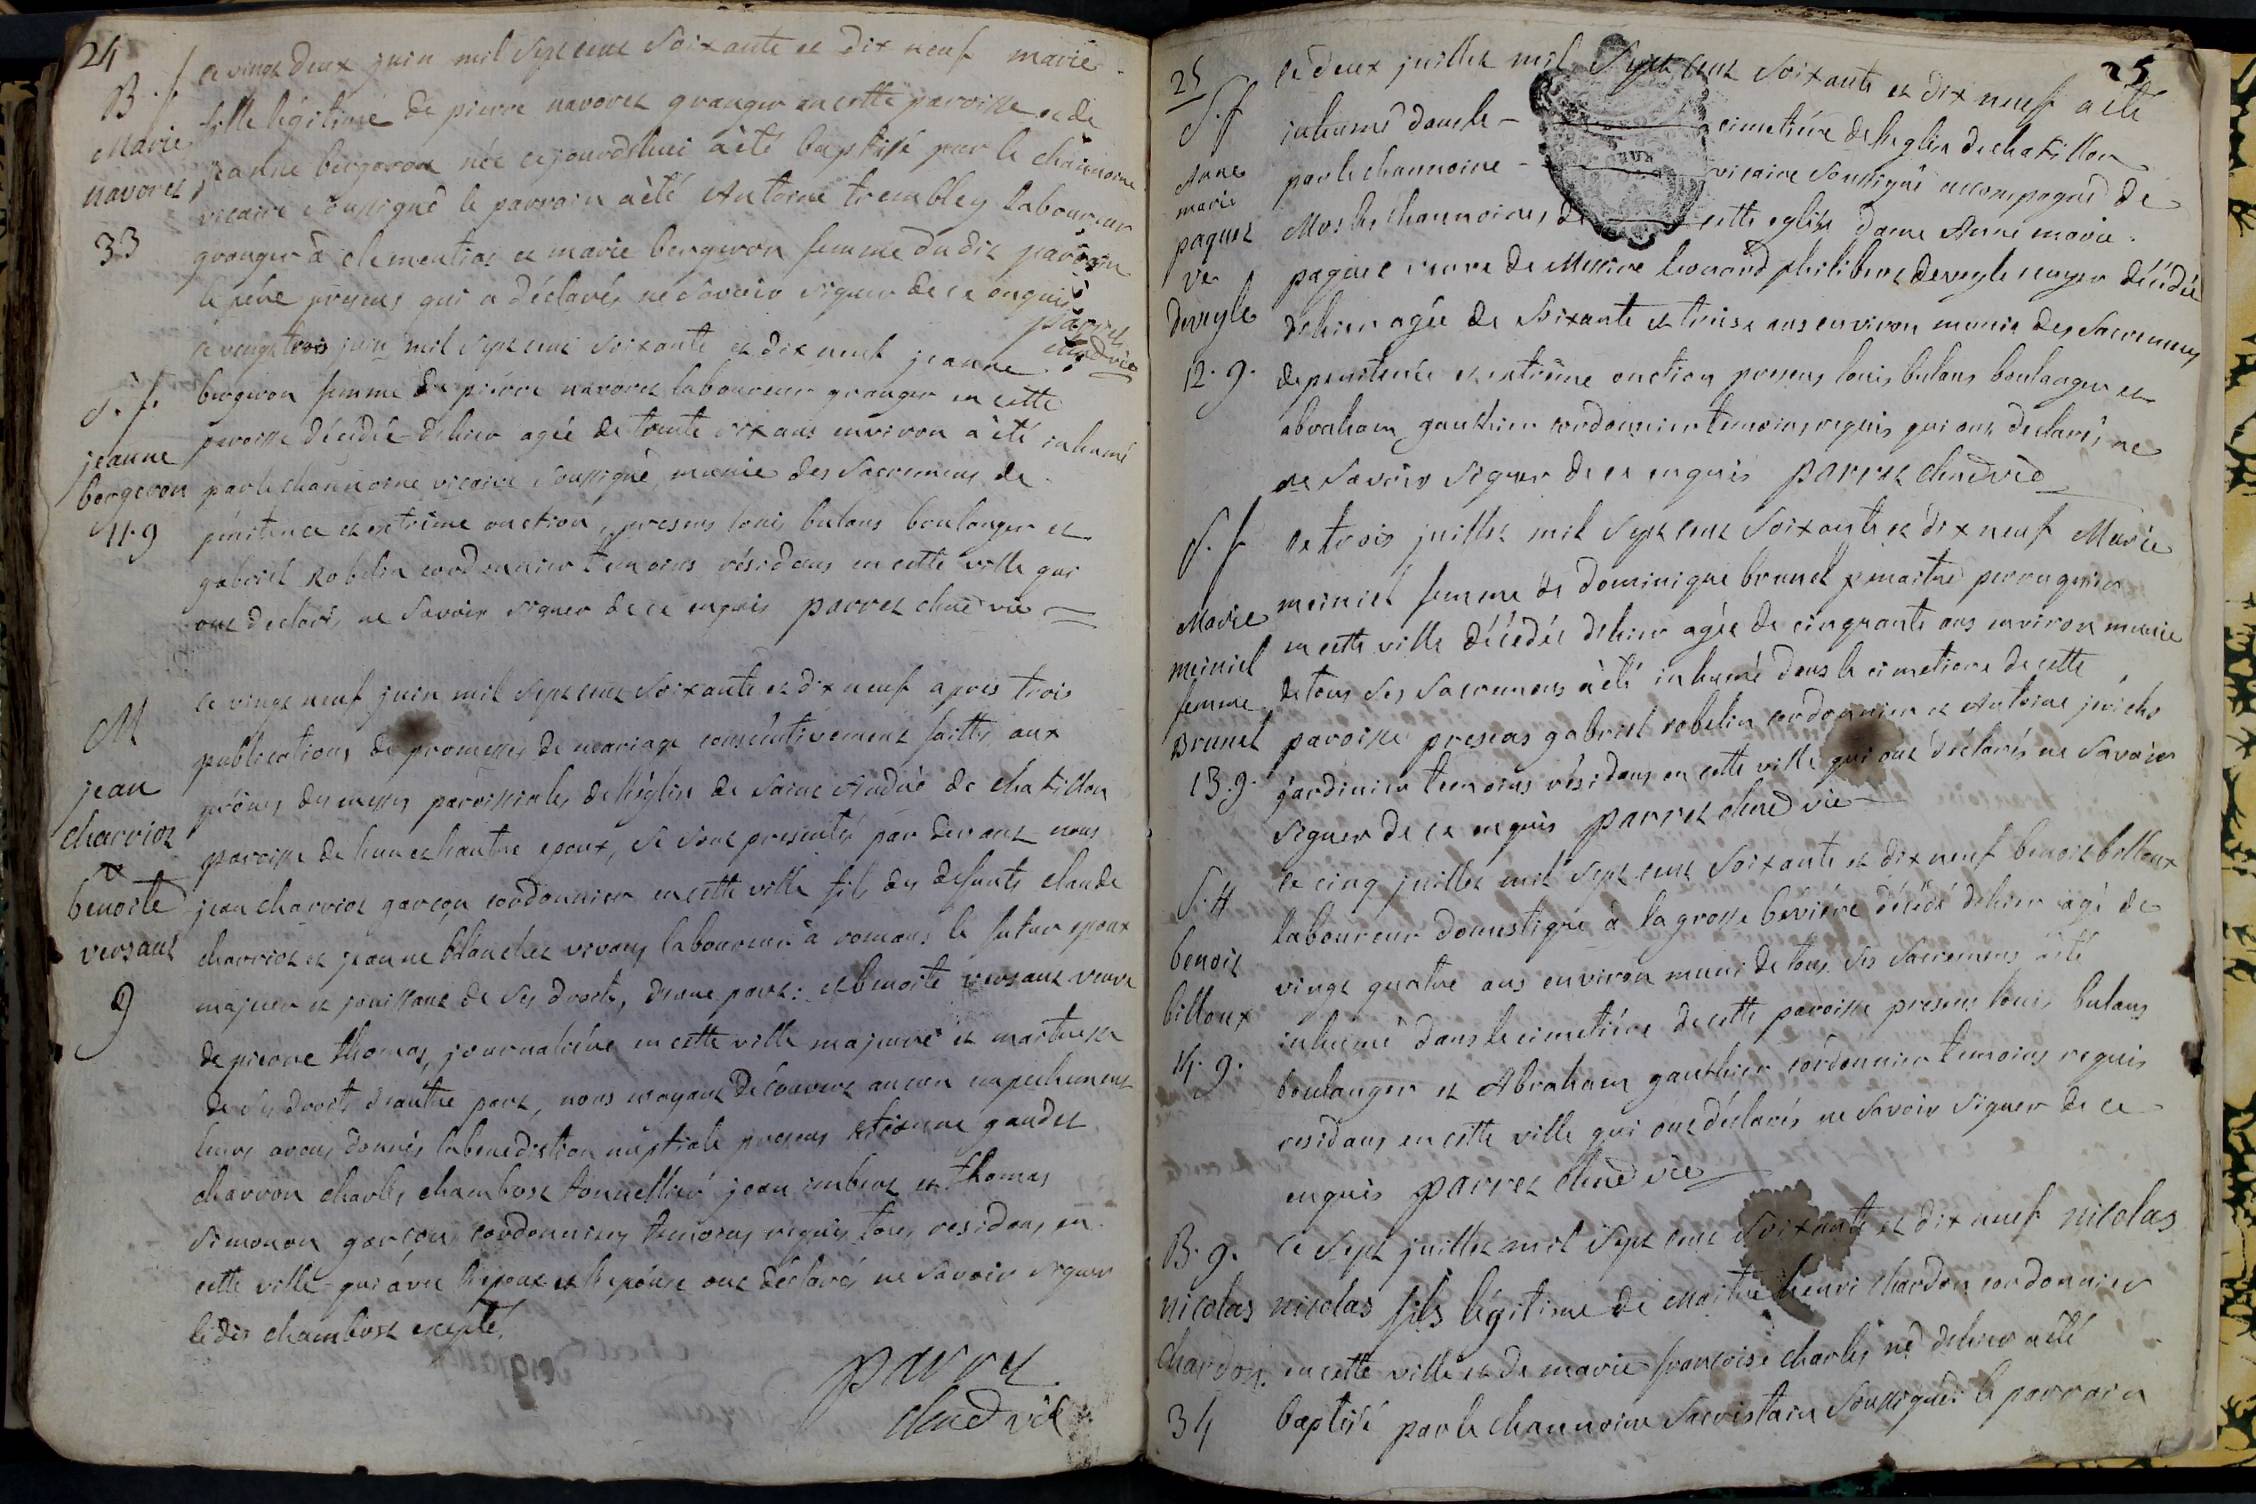 24
B. f
Marie
navoret
33
ce vingt deux juin mil sept cent soixante et dix neuf marie
fille légitime de pierre navoret granger en cette paroisse et de
jeanne bergeron née cejourdhui à été baptisé par le chanoine
vicaire soussigné le parrain à été Antoine trembley laboureur
granger à clementias et marie bergeron femme du dit parrain
le père presens qui a déclarés ne savoir signer de ce enquis
parret
chne d vic
S. f.
jeanne
bergeron
11. 9
ce vingt trois juin mil sept cent soixante et dix neuf jeanne
bergeron femme de pierre navoret laboureur granger en cette
paroisse décédée d'hier agée de trente six ans environ à été inhumé
par le channoine vicaire soussigné munie des sacremens de
pénitence et extrême onction, presens louis butans boulanger et
gabriel robelin cordonnier temoins résidans en cette ville qui
ont declarés ne savoir signer de ce enquis parret chne d vic
M
jean
charriot
et
benoite
versaut
9
ce vingt neuf juin mil sept cent soixante et dix neuf apres trois
publications de promesses de mariage consécutivement faittes aux
prônes des messes parroissiales de l'église de saint André de chatillon
paroisse de l'un et l'autre epoux, se sont presentés par devant nous
jean charriot garçon cordonnier en cette ville fils des defunts claude
charriot et jeanne blanchet vivans laboureur à romans le futur epoux
majeur et jouissant de ses droits, d'une part : et benoite versaut veuve
de pierre thomas, journalière en cette ville majeure et maitresse
de ses droits d'autre part, nous n'ayant découvert aucun empechement
leurs avons donnés la benediction nuptiale presens etienne gaudet
charron charles chambost tonnellier jean imbert et thomas
simonon garçons cordonniers temoins requis tous residans en
cette ville qui avec l'epoux et l'epouse ont déclarés ne savoir signer
le dit chambost excepté.
parret
chne d vic
25
25
S. f
Anne
marie
paquet
ve
deveyle
12. 9.
ce deux juillet mil sept cent soixante et dix neuf à été
inhumé dans le cimetière de l'eglise de chatillon
par le channoine vicaire soussigné accompagné de
Mrs les channoines de cette eglise dame Anne marie
paquet veuve de Messire leonard philibert deveyle ecuyer décédée
d'hier agée de soixante et treise ans environ munie des sacremens
de penitence et extrême onction presens louis butans boulanger et
abraham gauthier cordonnier temoins requis qui ont declarés ne
ne savoir signer de ce enquis parret chne d vic
S. f
Marie
meiniel
femme
Brunet
13. 9.
ce trois juillet mil sept cent soixante et dix neuf Marie
meiniel femme de dominique brunet maitre perruquier
en cette ville décédée d'hier agée de cinquante ans environ munie
de tous ses sacremens à été inhumé dans le cimetiere de cette
paroisse presens gabriel robelin cordonnier et Antoine
jardinier temoins résidans en cette ville qui ont déclarés ne savoir
signer de ce enquis parret chne d vic
S. H
benoit
billoux
14. 9.
ce cinq juillet mil sept cent soixante et dix neuf benoit billoux
laboureur domestique à la grosse bevière décédé d'hier agé de
vingt quatre ans environ muni de tous ses sacremens à été
inhumé dans le cimetière de cette paroisse presens louis butans
boulanger et Abraham gauthier cordonnier temoins requis
residans en cette ville qui ont déclarés ne savoir signer de ce
enquis parret chne d vic
B. g.
nicolas
chardon
34
ce sept juillet mil sept cent soixante et dix neuf nicolas
nicolas fils légitime de maitre henri chardon cordonnier
en cette ville et de marie françoise charles né d'hier a été
baptisé par le channoine sacristain soussigné le parrain